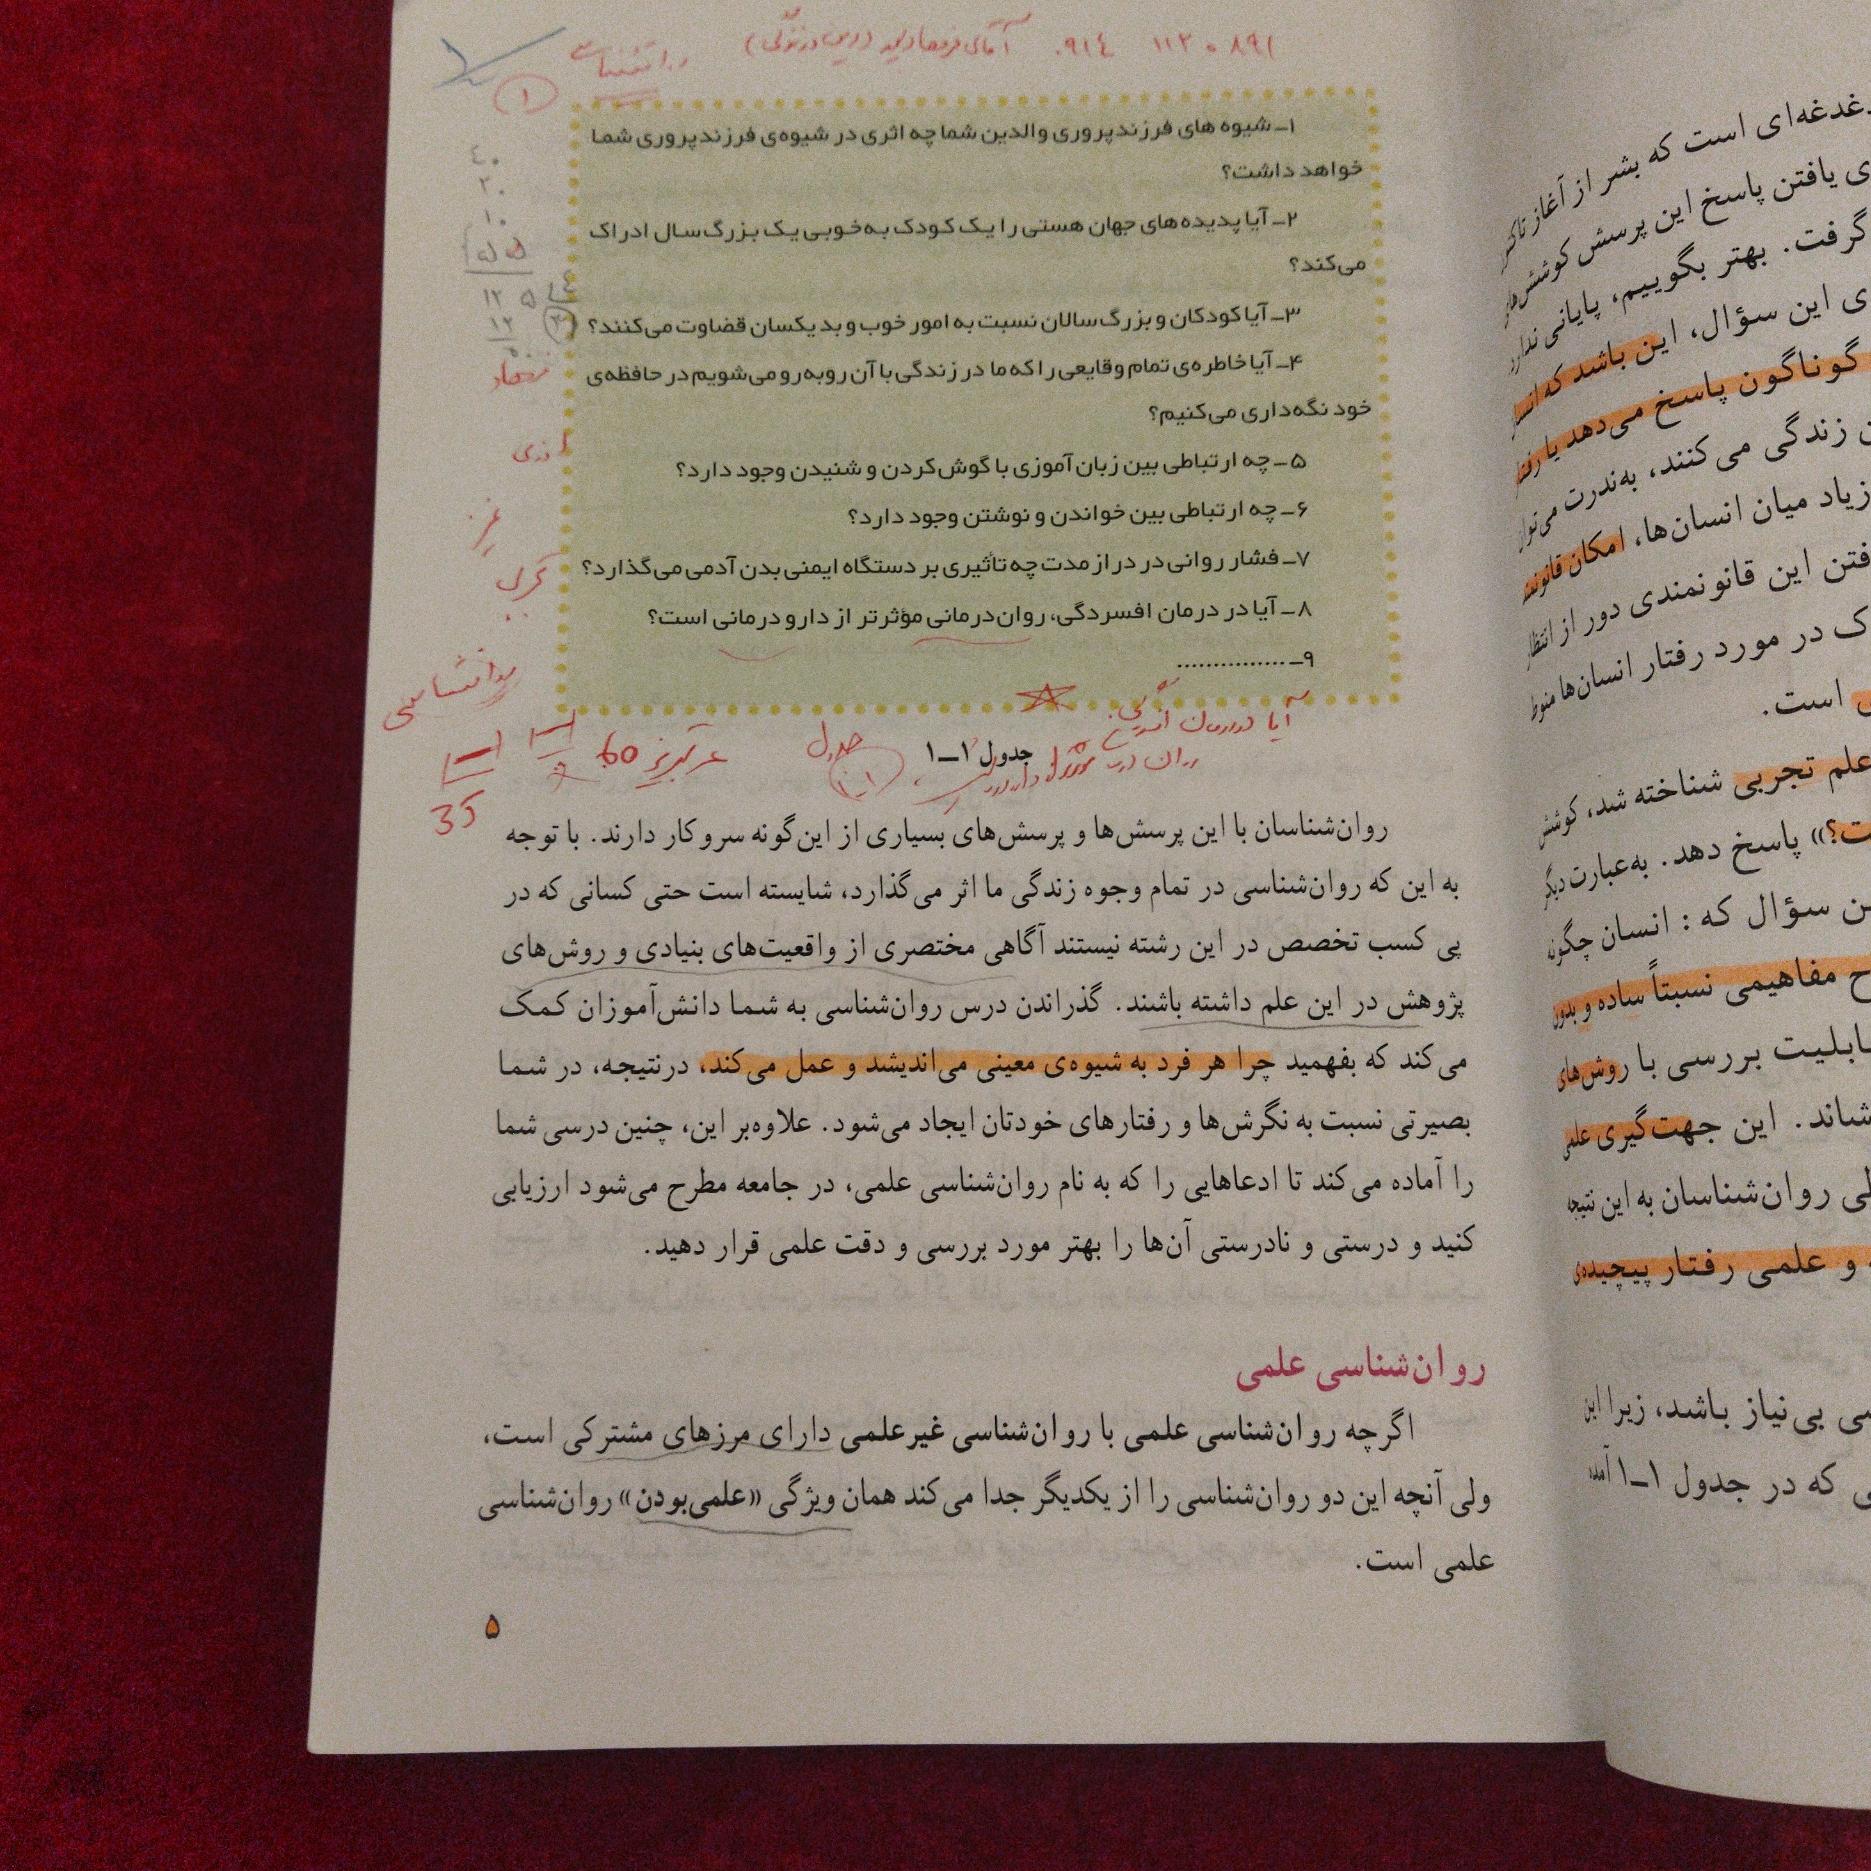 ۰۹۱٤ ۱۱۲۰۸۹۱
۱
۱ـ شیوه های فرزندپروری والدین شما چه اثری در شیوه‌ی فرزندپروری شما
خواهد داشت؟
۲ـ آیا پدیده‌های جهان هستی را یک کودک به‌خوبی یک بزرگ‌سال ادراک
می‌کند؟
۳ـ آیا کودکان و بزرگ‌سالان نسبت به امور خوب و بد یکسان قضاوت می‌کنند؟
۴ـ آیا خاطره‌ی تمام وقایعی را که ما در زندگی با آن روبه‌رو می‌شویم در حافظه‌ی
خود نگه‌داری می‌کنیم؟
۵ـ چه ارتباطی بین زبان‌آموزی با گوش‌کردن و شنیدن وجود دارد؟
۶ـ چه ارتباطی بین خواندن و نوشتن وجود دارد؟
۷ـ فشار روانی در دراز مدت چه تأثیری بر دستگاه ایمنی بدن آدمی می‌گذارد؟
۸ـ آیا در درمان افسردگی، روان‌درمانی مؤثرتر از دارو درمانی است؟
۹ـ ................
روانشناسی
60
35
جدول ۱ـ۱
روان‌شناسان با این پرسش‌ها و پرسش‌های بسیاری از این‌گونه سروکار دارند. با توجه
به این که روان‌شناسی در تمام وجوه زندگی ما اثر می‌گذارد، شایسته است حتی کسانی که در
پی کسب تخصص در این رشته نیستند آگاهی مختصری از واقعیت‌های بنیادی و روش‌های
پژوهش در این علم داشته باشند. گذراندن درس روان‌شناسی به شما دانش‌آموزان کمک
می‌کند که بفهمید چرا هر فرد به شیوه‌ی معینی می‌اندیشد و عمل می‌کند، درنتیجه، در شما
بصیرتی نسبت به نگرش‌ها و رفتارهای خودتان ایجاد می‌شود. علاوه‌بر این، چنین درسی شما
را آماده می‌کند تا ادعاهایی را که به نام روان‌شناسی علمی، در جامعه مطرح می‌شود ارزیابی
کنید و درستی و نادرستی آن‌ها را بهتر مورد بررسی و دقت علمی قرار دهید.
روان‌شناسی علمی
اگرچه روان‌شناسی علمی با روان‌شناسی غیرعلمی دارای مرزهای مشترکی است،
ولی آنچه این دو روان‌شناسی را از یکدیگر جدا می‌کند همان ویژگی «علمی‌بودن» روان‌شناسی
علمی است.
۵
دغدغه‌ای است که بشر از آغاز
یافتن پاسخ این پرسش
گرفت. بهتر بگوییم، پایانی ندارد
این سؤال، این باشد که
گوناگون پاسخ می‌دهد یا
زندگی می‌کنند، به‌ندرت
زیاد میان انسان‌ها، امکان
این قانونمندی دور از
در مورد رفتار انسان‌ها منوط
است.
علم تجربی شناخته شد، کوشش
پاسخ دهد. به‌عبارت دیگر
سؤال که : انسان چگونه
مفاهیمی نسبتاً ساده و بدون
بررسی با روش‌های
این جهت‌گیری علمی
روان‌شناسان به این نتیجه
و علمی رفتار پیچیده‌ی
بی‌نیاز باشد، زیرا این
که در جدول ۱ـ۱ آمده